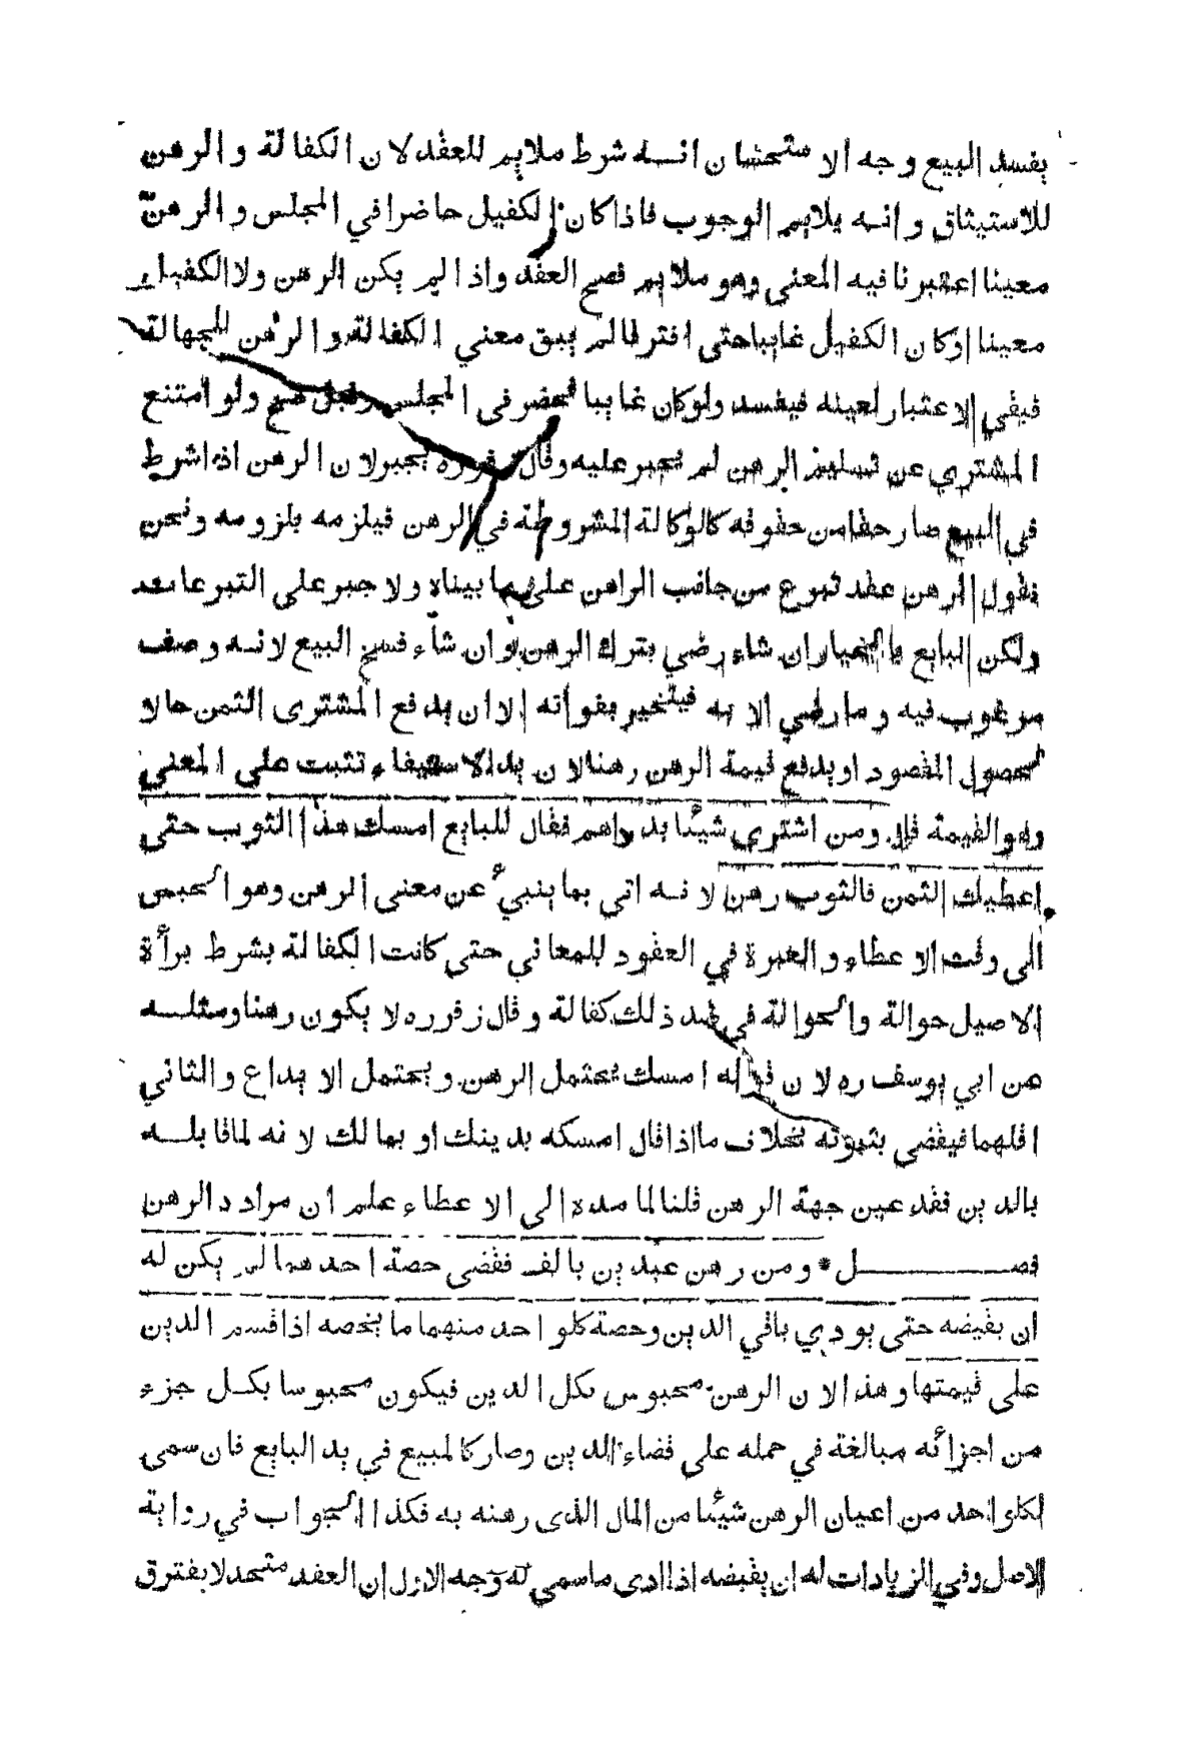 يفسد البيع وجه الاستحسان انه شرط ملايم للعقد لان الكفالة والرهن
للاستيثاق وانه يلايم الوجوب فاذا كان الكفيل حاضرا في المجلس والرهن
معينا اعتبرنا فيه المعنى وهو ملايم فصح العقد واذا لم يكن الرهن ولا الكفيل
معينا اوكان الكفيل غايبا حتى افترقا لم يبق معني الكفالة والرهن للجهالة
فبقي الاعتبار لعينه فيفسد ولوكان غايبا فحضر فى المجلس وقبل صح ولو امتنع
المشتري عن تسليم الرهن لم يجبر عليه وقال زفر ره يجبر لان الرهن اذا شرط
في البيع صار حقا من حقوقه كالوكالة المشروطة في الرهن فيلزمه بلزومه ونحن
نقول الرهن عقد تبرع من جانب الراهن على ما بيناه ولا جبر على التبرعات
ولكن البايع بالخيار ان شاء رضي بترك الرهن وان شاء فسخ البيع لانه وصف
مرغوب فيه وما رضي الا به فيتخير بفواته الا ان يدفع المشترى الثمن حالا
لحصول المقصود او يدفع قيمة الرهن رهنا لان يد الاستيفاء تثبت على المعني
وهو القيمة قال ومن اشتري شيئا بدراهم فقال للبايع امسك هذا الثوب حتى
اعطيك الثمن فالثوب رهن لانه اتي بما ينبيء عن معنى الرهن وهو الحبس
الى وقت الاعطاء والعبرة في العقود للمعاني حتى كانت الكفالة بشرط برأة
الاصيل حوالة والحوالة في ضد ذلك كفالة وقال زفر ره لا يكون رهنا ومثله
عن ابي يوسف ره لان قوله امسك يحتمل الرهن ويحتمل الايداع والثاني
اقلهما فيقضى بثبوته بخلاف ما اذا قال امسكه بدينك او بمالك لانه لما قابله
بالدين فقد عين جهة الرهن قلنا لما مده الى الاعطاء علم ان مراده الرهن
فصـــل * ومن رهن عبدين بالف فقضى حصة احدهما لم يكن له
ان يقبضه حتى يودي باقي الدين وحصة كلواحد منهما ما يخصه اذا قسم الدين
على قيمتها وهذا لان الرهن محبوس بكل الدين فيكون محبوسا بكل جزء
من اجزائه مبالغة في حمله على قضاء الدين وصار كالمبيع في يد البايع فان سمى
لكلواحد من اعيان الرهن شيئا من المال الذى رهنه به فكذا الجواب في رواية
الاصل وفي الزيادات له ان يقبضه اذا ادى ما سمي له وجه الاول ان العقد متحد لا يفترق